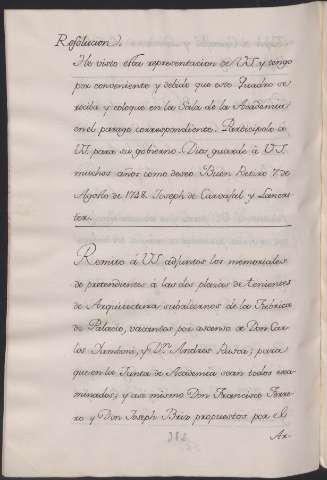 Resolucion.
He visto esta representacion de VS. y tengo
por conveniente y debido que este Quadro se
reciba y coloque en la Sala de la Academia
en el parage correspondiente. Participolo a
VS. para su gobierno. Dios guarde à VS.
muchos años como deseo. Buen Retiro 7. de
Agosto de 1748. Joseph de Carvajal y Lancas-
ter.
Remito á VS. adjuntos los memoriales
de pretendientes á las dos plazas de tenientes
de Arquitectura, subalternos de la Fabrica
de Palacio, vacantes por ascenso de Don Car-
los y Dn. Andres Rusca; para
que en la Junta de Academia sean todos exa-
minados; y asi mismo Don Francisco Ferre-
ro y Don Joseph propuestos por el
Ar-